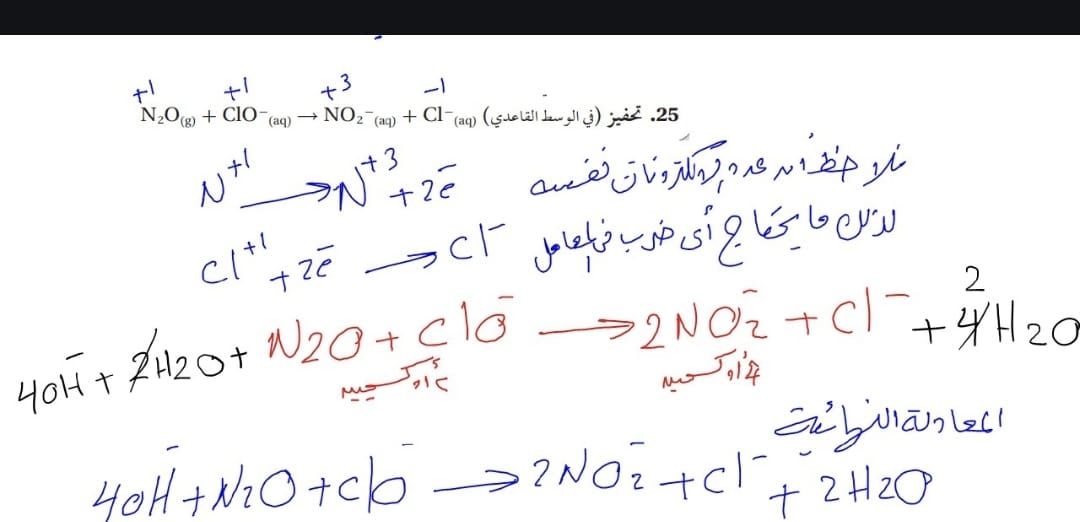 +1 +1 +3 -1
25. تحفيز (في الوسط القاعدي) N₂O(g) + ClO⁻(aq) → NO₂⁻(aq) + Cl⁻(aq)
N⁺¹ → N⁺³ + 2e⁻ نلاحظ أن عدد إلكترونات نفسه
Cl⁺¹ + 2e⁻ → Cl⁻ لذلك ما يحتاج أي ضرب في المعامل
2
4OH⁻ + 2H2O + N2O + ClO⁻ → 2NO₂⁻ + Cl⁻ + 4H2O
2 أوكسجين 4 أوكسجين
المعادلة النهائية
4OH⁻ + N2O + ClO⁻ → 2NO₂⁻ + Cl⁻ + 2H2O